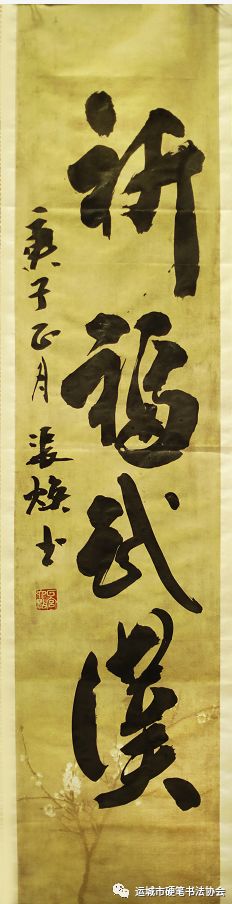 祈福武漢
庚子正月 張煥书
运城市硬笔书法协会